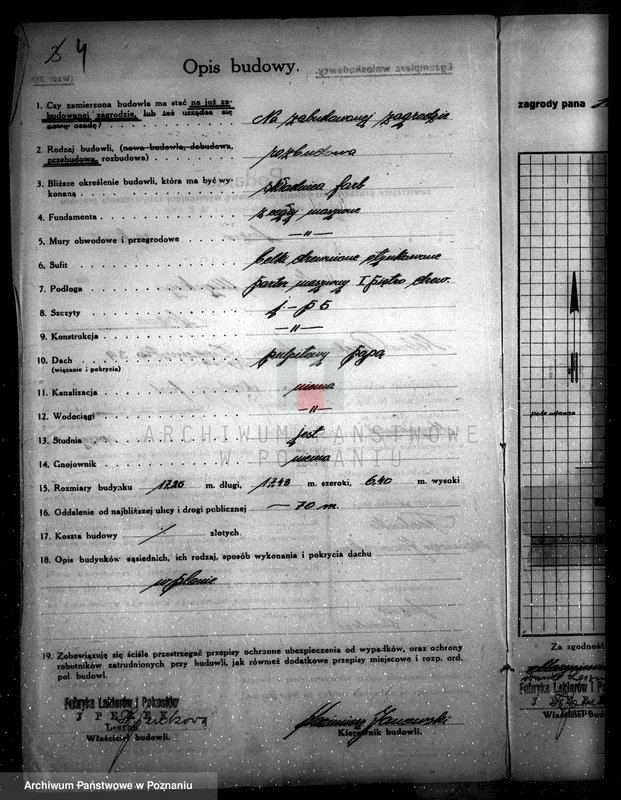 4
Opis budowy.
Egzemplarz wnioskodawcy
1. Czy zamierzona budowla ma stać na już za-
budowanej zagrodzie, lub też urządza się
nową osadę?
Na zabudowanej zagrodzie
2. Rodzaj budowli, (nowa budowla, dobudowa,
przebudowa, rozbudowa)
rozbudowa
3. Bliższe określenie budowli, która ma być wy-
konaną
składnica farb
4. Fundamenta
z cegły maszynowe
5. Mury obwodowe i przegrodowe
— " —
6. Sufit
belki drewniane otynkowane
7. Podłoga
parter masywny I piętro drew.
8. Szczyty
j. — p 5
9. Konstrukcja
— " —
10. Dach
(wiązanie i pokrycia)
pulpitowy papa
11. Kanalizacja
niema
12. Wodociągi
— " —
13. Studnia
jest
14. Gnojownik
niema
15. Rozmiary budynku 17.26 m. długi, 17.48 m. szeroki, 6.40 m. wysoki
16. Oddalenie od najbliższej ulicy i drogi publicznej — 70 m.
17. Koszta budowy / złotych.
18. Opis budynków sąsiednich, ich rodzaj, sposób wykonania i pokrycia dachu
w planie
19. Zobowiązuję się ściśle przestrzegać przepisy ochronne ubezpieczenia od wypadków, oraz ochrony
robotników zatrudnionych przy budowli, jak również dodatkowe przepisy miejscowe i rozp. ord.
pol. budowli.
Fabryka Lakierów i Pokostów
Leszno
Właściciel budowli.
Kazimierz Janowski
Kierownik budowli.
zagrody pana
pole własne
Za zgodność
Fabryka Lakierów i Po
Właściciel Bud
ARCHIWUM PAŃSTWOWE
W POZNANIU
Archiwum Państwowe w Poznaniu